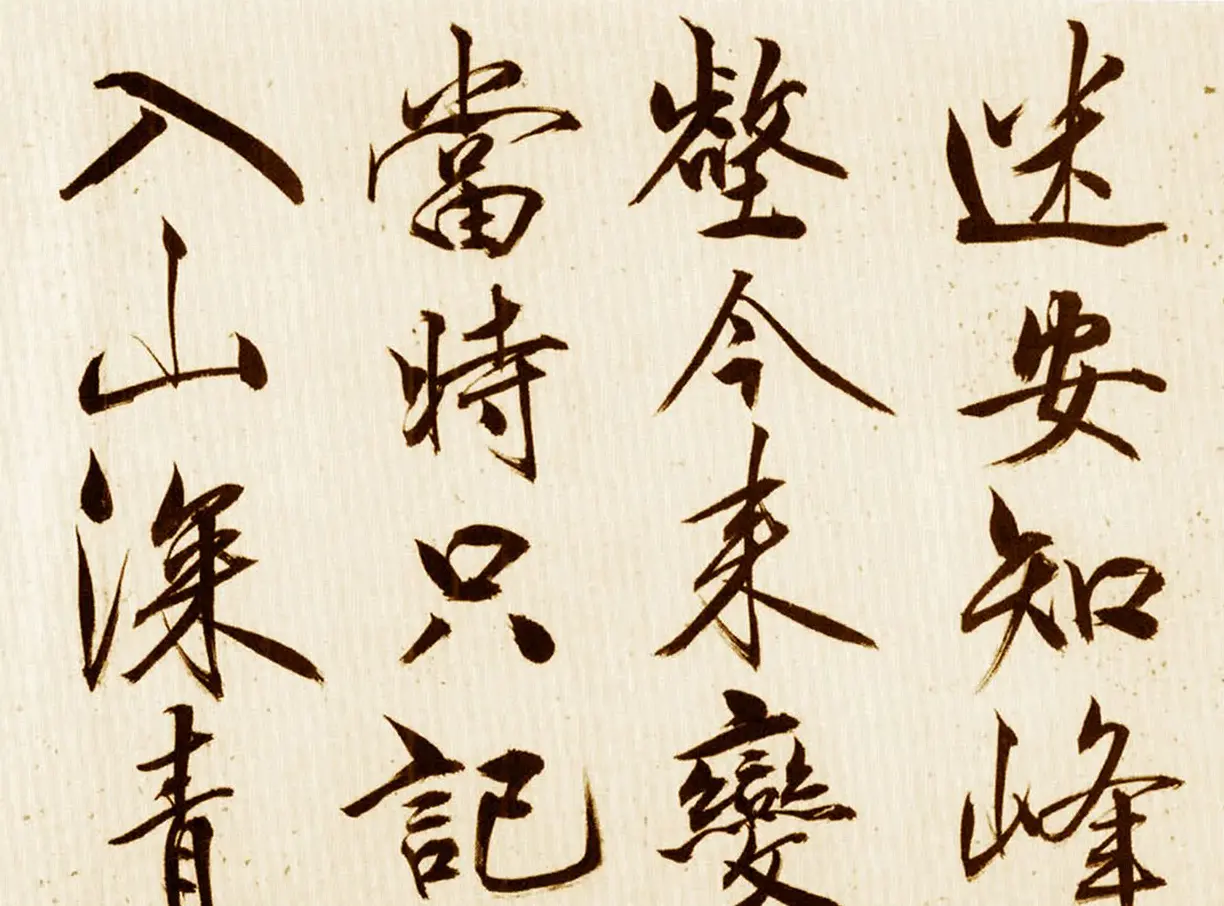 迷安知峰
壑今来變
當時只記
入山深青